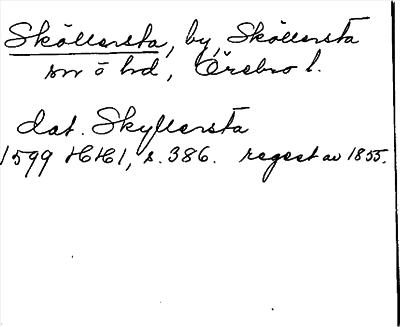 Sköllersta, by, Sköllersta
sn o hd, Örebro l.
dat. Skyllersta
1599 HH1, s. 386. regest av 1855.